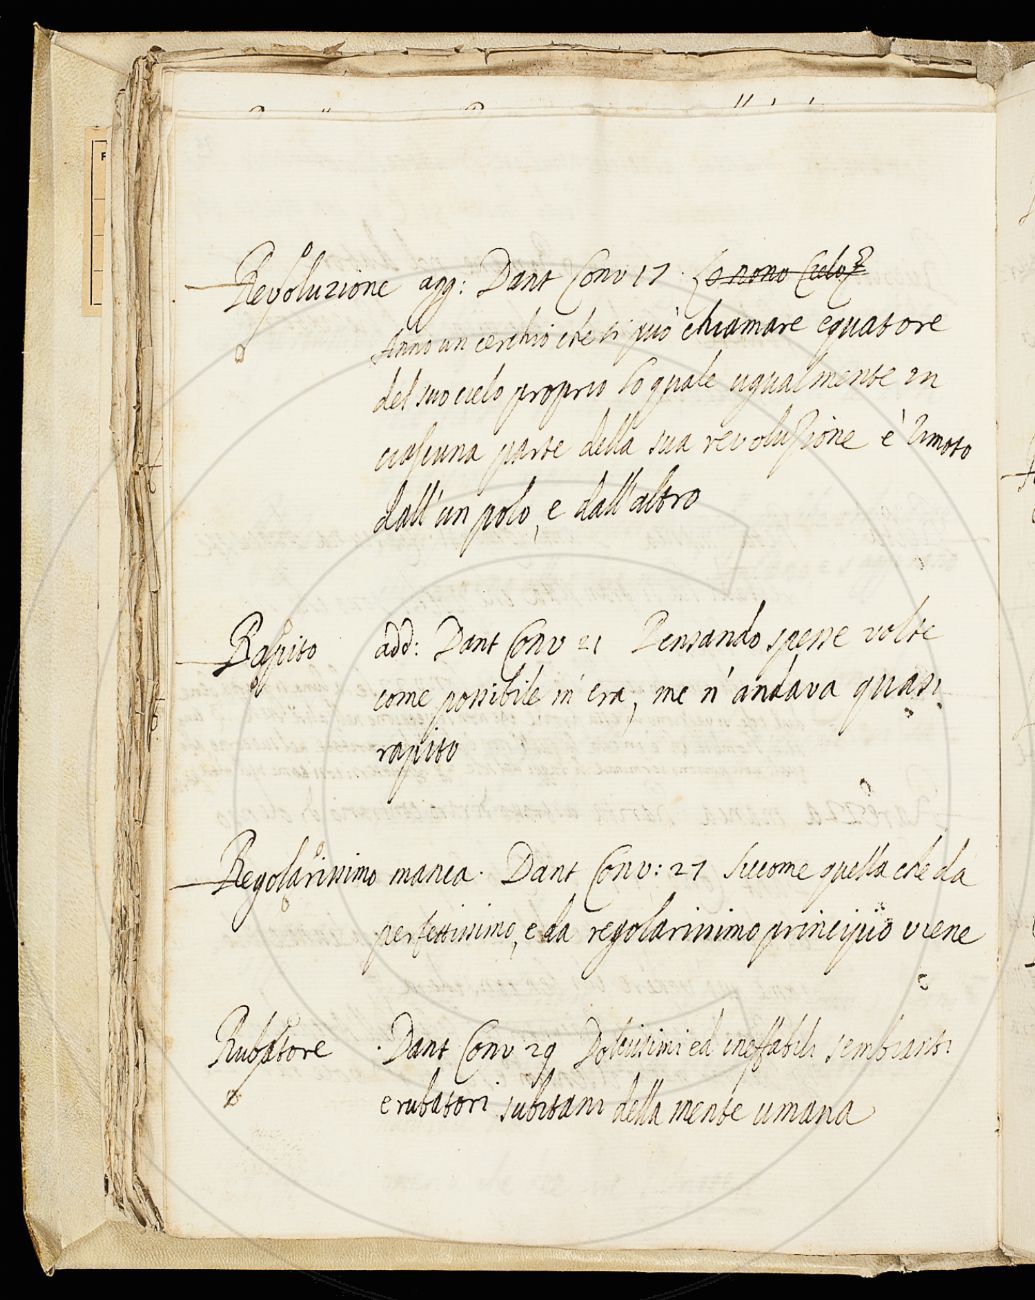 Revoluzione agg: Dant Conv 17. Lo nono Cielo
Anno un cerchio che si può chiamare equatore
del suo cielo proprio lo quale ugualmente in
ciascuna parte della sua revoluzione è rimoto
dall'un polo, e dall'altro
Rapito add: Dant Conv 21 Pensando spesse volte
come possibile m'era, me n'andava quasi
rapito
Regolarissimo manca. Dant Conv: 27 siccome quella che da
perfettissimo, e da regolarissimo principio viene
Rubatore. Dant Conv 29 Dolcissimi ed ineffabili sembianti
e rubatori subitani della mente umana